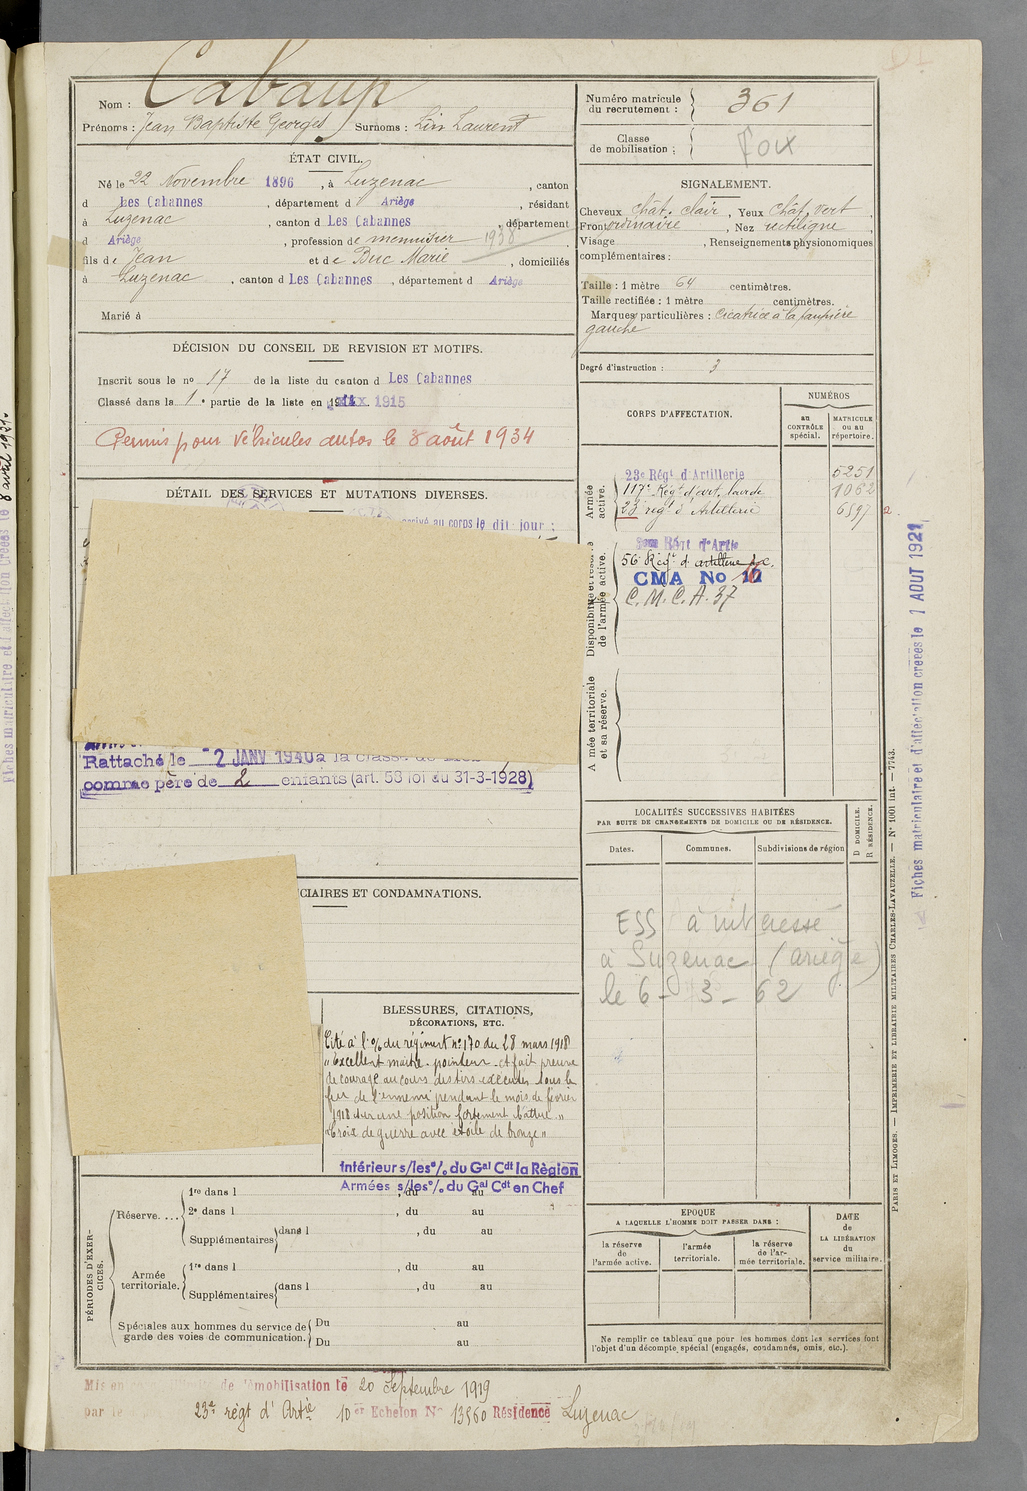 Nom : Cabaup
Prénoms : Jean Baptiste Georges Surnoms : Lin Laurent
ÉTAT CIVIL.
Né le 22 Novembre 1896, à Luzenac, canton
d Les Cabannes, département d Ariège, résidant
à Luzenac, canton d Les Cabannes, département
d Ariège, profession de menuisier 1938
fils de Jean et de Buc Marie, domiciliés
à Luzenac, canton d Les Cabannes, département d Ariège
Marié à
DÉCISION DU CONSEIL DE REVISION ET MOTIFS.
Inscrit sous le no 17 de la liste du canton d Les Cabannes
Classé dans la 1e partie de la liste en 1915
Permis pour véhicules autos le 8 août 1934
DÉTAIL DES SERVICES ET MUTATIONS DIVERSES.
arrivé au corps le dit jour :
Rattaché le 2 JANV 1940 à la classe de
comme père de 2 enfants (art. 58 loi du 31-3-1928)
CIAIRES ET CONDAMNATIONS.
BLESSURES, CITATIONS,
DÉCORATIONS, ETC.
Cité à l'o/ du régiment no 170 du 28 mars 1918
"Excellent maître-pointeur - a fait preuve
de courage au cours des tirs exécutés sous le
feu de l'ennemi pendant le mois de février
1918 sur une position fortement battue"
"Croix de guerre avec étoile de bronze"
Intérieur s/les o/o du Gal Cdt la Région
Armées s/les o/o du Gal Cdt en Chef
PÉRIODES D'EXERCICES.
Réserve. ...
1re dans l , du au
2e dans l , du au
Supplémentaires dans l , du au
Armée territoriale.
1re dans l , du au
Supplémentaires dans l , du au
Spéciales aux hommes du service de
garde des voies de communication.
Du au
Du au
Mis en de démobilisation le 20 Septembre 1919
par le 23e régt d'Artie 10er Echelon No 13560 Résidence Luzenac
Numéro matricule
du recrutement : 361
Classe
de mobilisation : Foix
SIGNALEMENT.
Cheveux chât. clair, Yeux chât. vert,
Front ordinaire, Nez rectiligne,
Visage , Renseignements physionomiques
complémentaires :
Taille : 1 mètre 64 centimètres.
Taille rectifiée : 1 mètre centimètres.
Marques particulières : Cicatrice à la paupière
gauche
Degré d'instruction : 3
CORPS D'AFFECTATION.
NUMÉROS
au CONTRÔLE spécial.
MATRICULE ou au répertoire.
Armée active.
23e Régt d'Artillerie 5251
117e Régt d'art. lourde 1062
23e régt d'Artillerie 6597
Disponibilité et réserve de l'armée active.
56e Régt d'artillerie
CMA No
C.M.C.A. 37
Armée territoriale et sa réserve.
LOCALITÉS SUCCESSIVES HABITÉES
PAR SUITE DE CHANGEMENTS DE DOMICILE OU DE RÉSIDENCE.
Dates. Communes. Subdivisions de région
D DOMICILE.
R RÉSIDENCE.
ESS à intéressé
à Luzenac (ariège)
le 6 - 3 - 62
EPOQUE
A LAQUELLE L'HOMME DOIT PASSER DANS :
la réserve de l'armée active.
l'armée territoriale.
la réserve de l'armée territoriale.
DATE de LA LIBÉRATION du service militaire.
Ne remplir ce tableau que pour les hommes dont les services font
l'objet d'un décompte spécial (engagés, condamnés, omis, etc.).
PARIS ET LIMOGES. — IMPRIMERIE ET LIBRAIRIE MILITAIRES CHARLES-LAVAUZELLE. — No 1001 int. — 7743.
Fiches matriculaire et d'affectation créées le 1 AOUT 1921
Fiches matriculaire et d'affectation créées le 8 avril 1931.